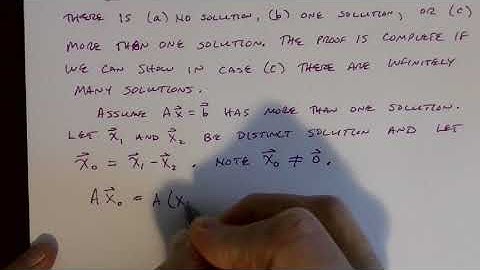 THERE IS (a) NO SOLUTION, (b) ONE SOLUTION, OR (c)
MORE THAN ONE SOLUTION. THE PROOF IS COMPLETE IF
WE CAN SHOW IN CASE (c) THERE ARE INFINITELY
MANY SOLUTIONS.
ASSUME Ax⃗ = b⃗ HAS MORE THAN ONE SOLUTION.
LET x⃗₁ AND x⃗₂ BE DISTINCT SOLUTION AND LET
x⃗₀ = x⃗₁ - x⃗₂ . NOTE x⃗₀ ≠ 0⃗ .
Ax⃗₀ = A(x